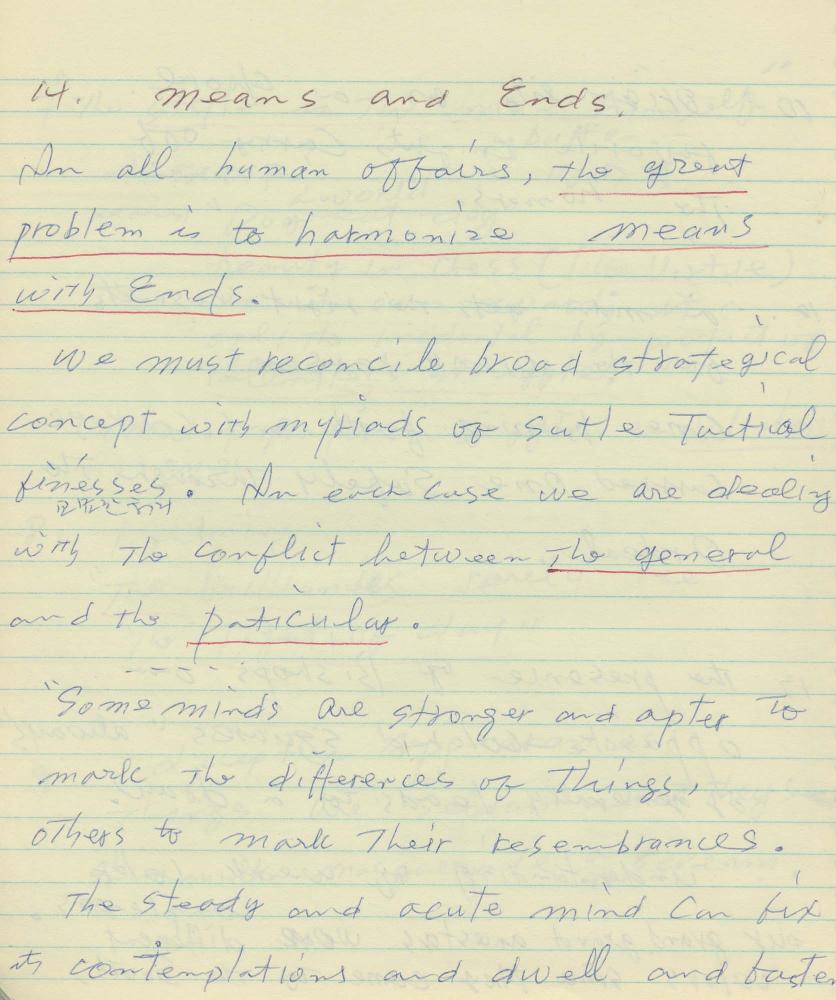 14. Means and Ends.
In all human affairs, the great
problem is to harmonize means
with Ends.
We must reconcile broad strategical
concept with myriads of sutle Tactical
finesses. In each case we are dealing
with the conflict between the general
and the paticular.
----
"Some minds are stronger and apter to
mark the differences of Things,
others to mark Their resembrances.
The steady and acute mind can fix
its contemplations and dwell and faste